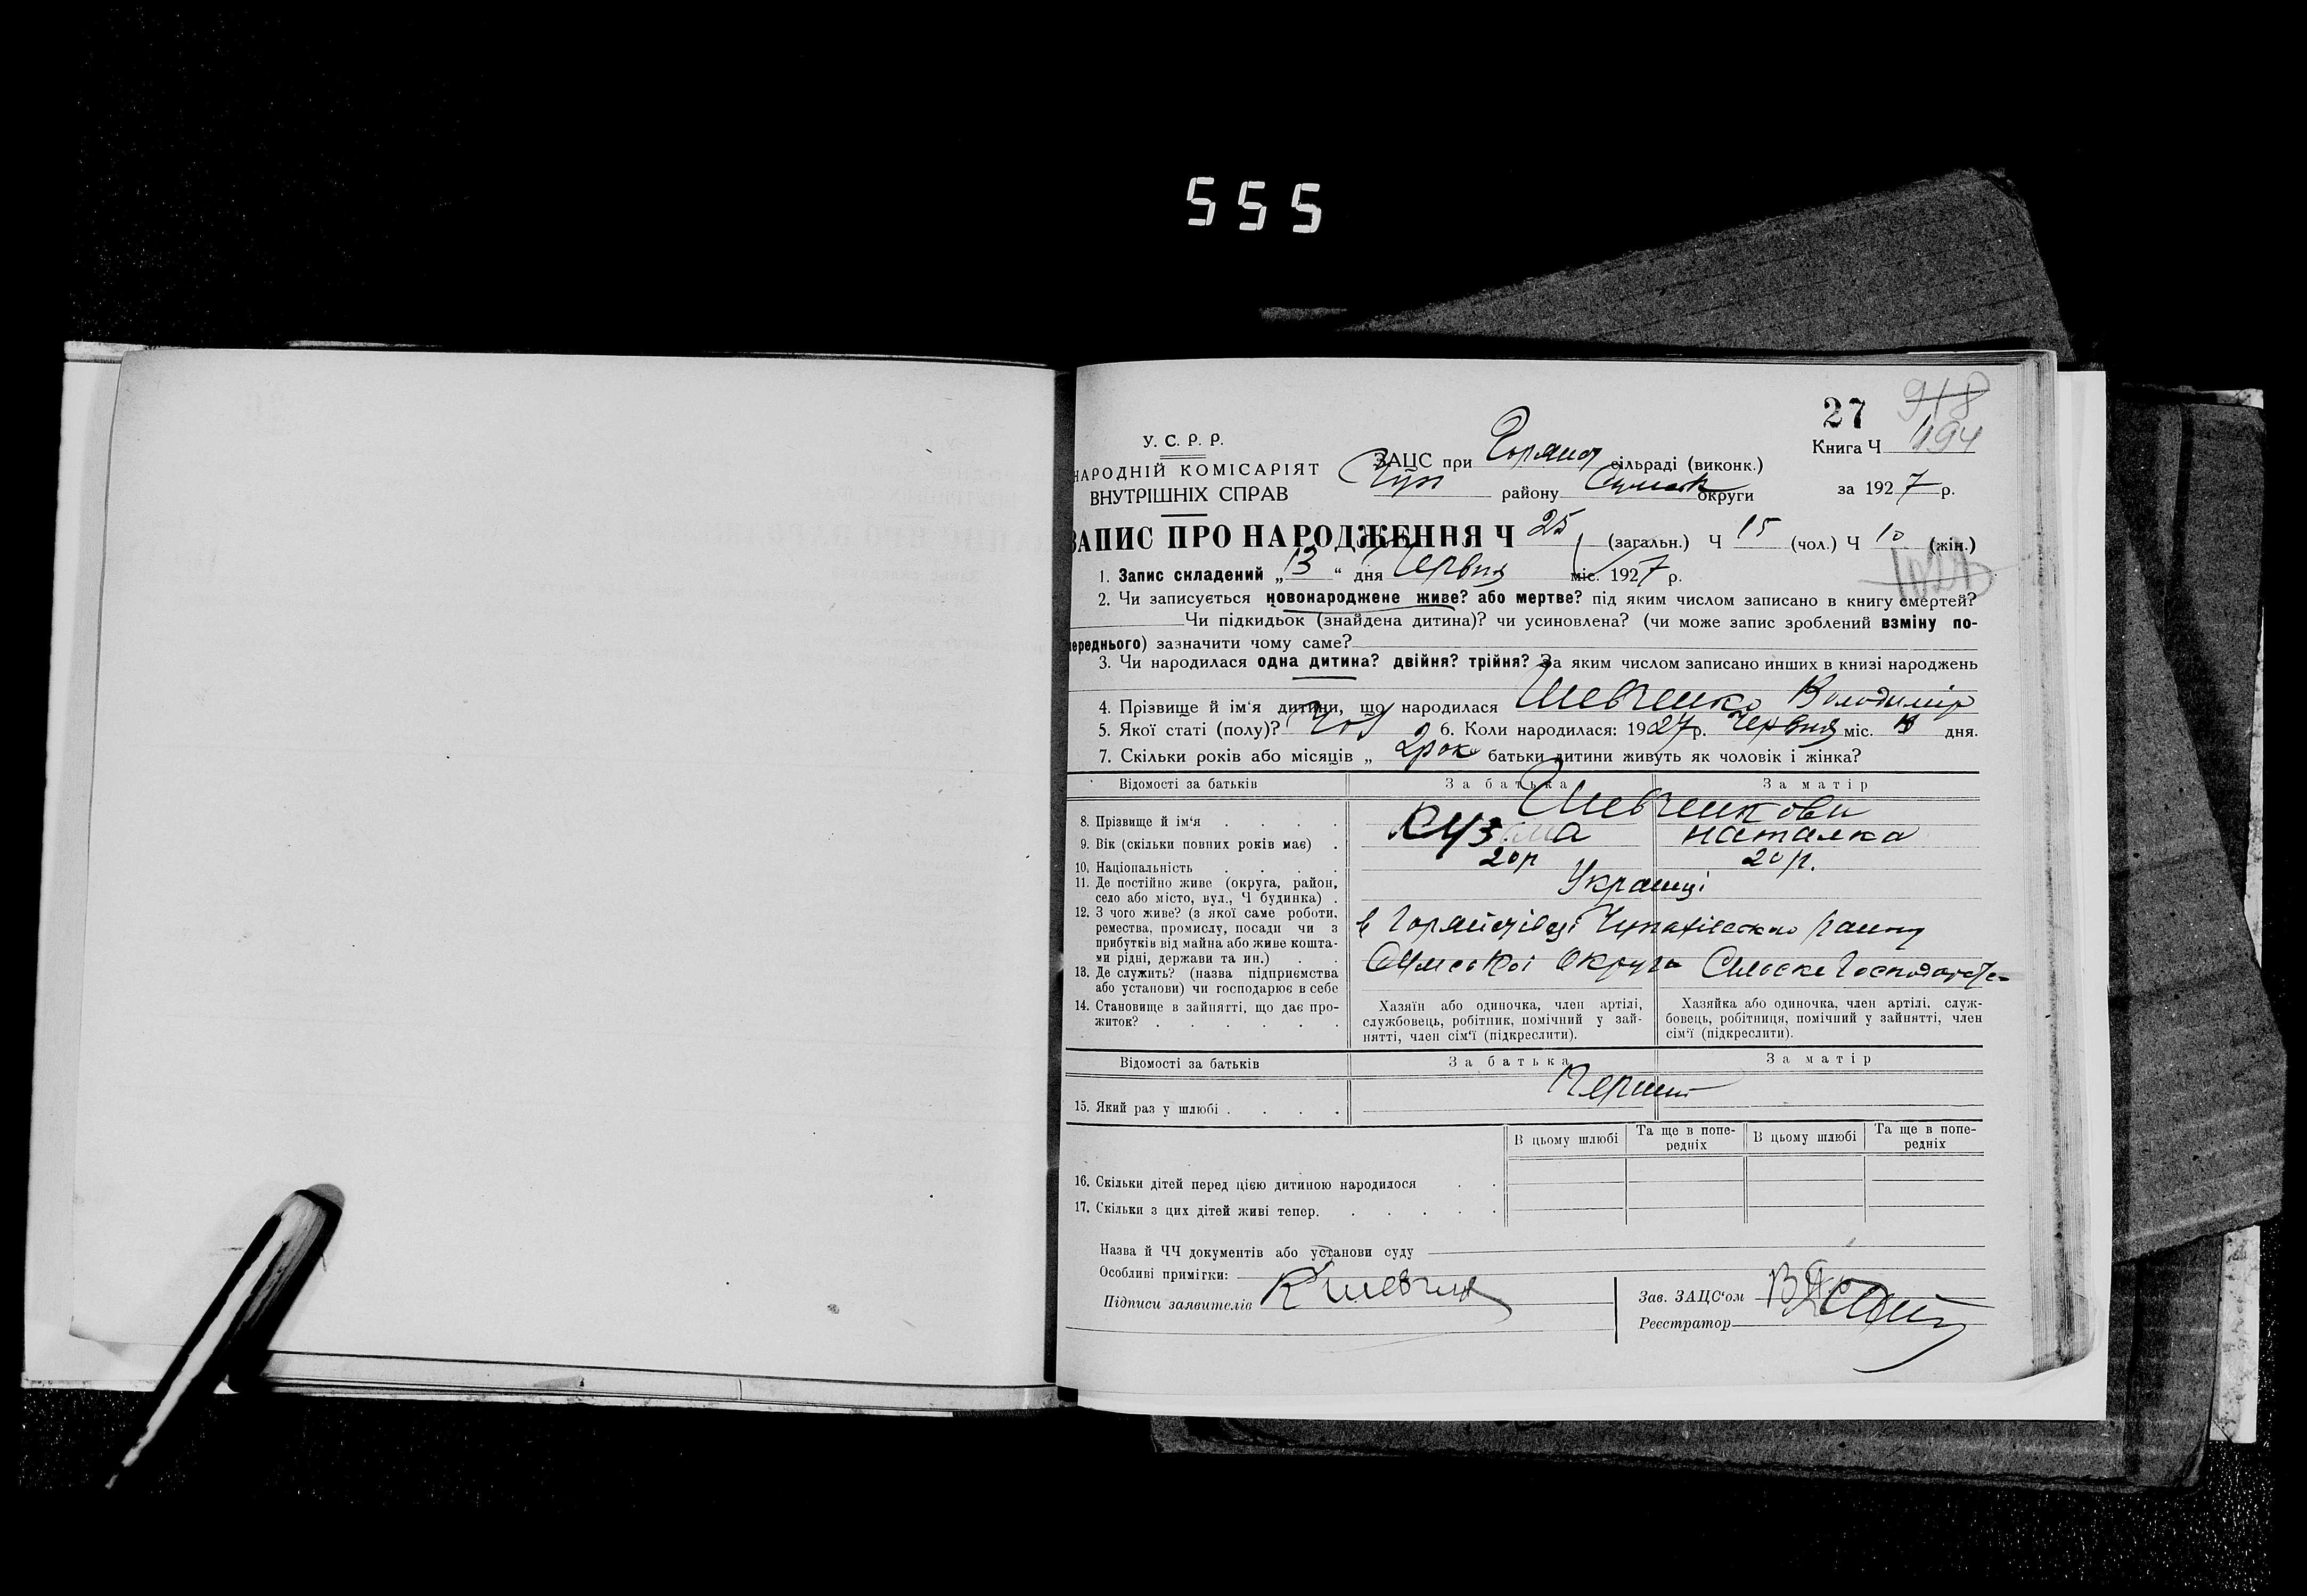 555
27 948
У. С. Р. Р.
Книга Ч 194
НАРОДНІЙ КОМІСАРІЯТ
ВНУТРІШНІХ СПРАВ
ЗАЦС при сільраді (виконк.)
Чуп району Сумськ округи за 1927 р.
ЗАПИС ПРО НАРОДЖЕННЯ Ч 25 (загальн.) Ч 15 (чол.) Ч 10 (жін.)
1. Запис складений „13“ дня Червня міс. 1927 р.
2. Чи записується новонароджене живе? або мертве? під яким числом записано в книгу смертей?
Чи підкидьок (знайдена дитина)? чи усиновлена? (чи може запис зроблений взміну по-
переднього) зазначити чому саме?
3. Чи народилася одна дитина? двійня? трійня? За яким числом записано инших в книзі народжень
4. Прізвище й ім‘я дитини, що народилася Шевченко Володимір
5. Якої статі (полу)? Чол 6. Коли народилася: 1927 р. Червня міс. дня.
7. Скільки років або місяців „ 2 рок батьки дитини живуть як чоловік і жінка?
Відомості за батьків За батька За матір
Шевченкови
8. Прізвище й ім‘я Кузьма Наталка
9. Вік (скільки повних років має) 20 р 20 р.
10. Національність Українці
11. Де постійно живе (округа, район,
село або місто, вул., Ч будинка)
12. З чого живе? (з якої саме роботи,
ремества, промислу, посади чи з
прибутків від майна або живе кошта-
ми рідні, держави та ин.)
в Чупахівського району
Сумської Округи Сільске Господарст
13. Де служить? (назва підприємства
або установи) чи господарює в себе
14. Становище в зайнятті, що дає про-
житок?
Хазяїн або одиночка, член артілі,
службовець, робітник, помічний у зай-
нятті, член сім‘ї (підкреслити).
Хазяйка або одиночка, член артілі, служ-
бовець, робітниця, помічний у зайнятті, член
сім‘ї (підкреслити).
Відомості за батьків За батька За матір
15. Який раз у шлюбі Перший
В цьому шлюбі Та ще в попе-редніх В цьому шлюбі Та ще в попе-редніх
16. Скільки дітей перед цією дитиною народилося
17. Скільки з цих дітей живі тепер.
Назва й ЧЧ документів або установи суду
Особливі примітки:
Підписи заявителів К Шевченк
Зав. ЗАЦС‘ом
Реєстратор